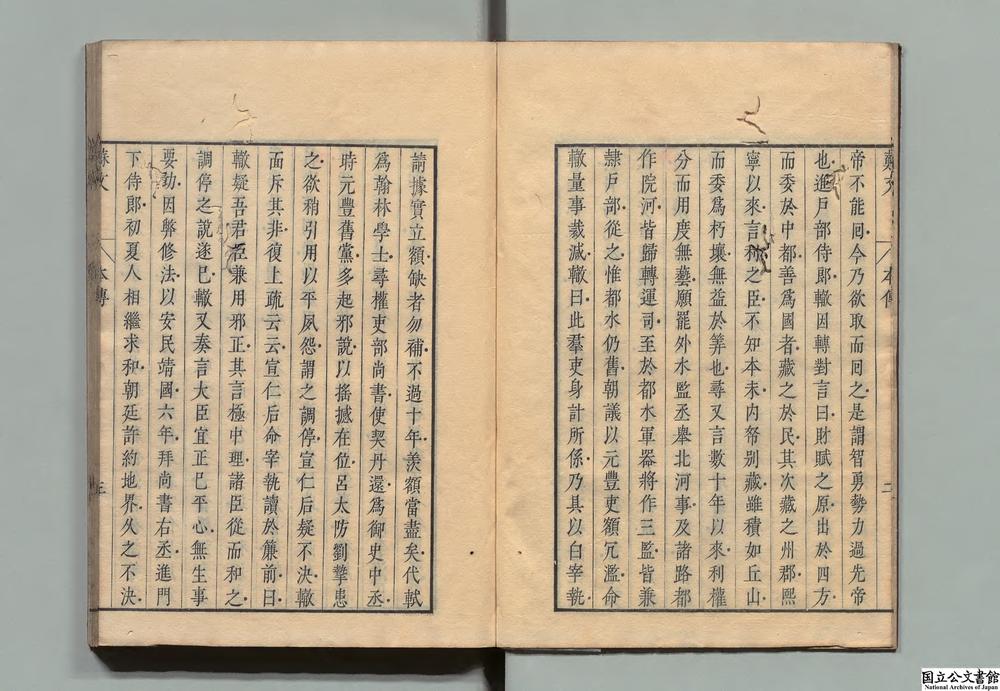 帝不能回今乃欲取而回之是謂智勇勢力過先帝
也進戸部侍郎轍因轉對言曰財賦之原出於四方
而委於中都善爲國者藏之於民其次藏之州郡熙
寧以來言利之臣不知本末内帑别藏雖積如丘山
而委爲朽壞無益於筭也尋又言數十年以來利權
分而用度無藝願罷外水監丞舉北河事及諸路都
作院河皆歸轉運司至於都水軍器將作三監皆兼
隷戸部從之惟都水仍舊朝議以元豐吏額冗濫命
轍量事裁減轍曰此羣吏身計所係乃具以白宰執
請據實立額缺者勿補不過十年羡額當盡矣代軾
爲翰林學士尋權吏部尚書使契丹還爲御史中丞
時元豐舊黨多起邪說以搖撼在位呂太防劉摯患
之欲稍引用以平夙怨謂之調停宣仁后疑不決轍
面斥其非復上疏云云宣仁后命宰執讀於簾前曰
轍疑吾君臣兼用邪正其言極中理諸臣從而和之
調停之說遂已轍又奏言大臣宜正已平心無生事
要劲因弊修法以安民靖國六年拜尚書右丞進門
下侍郎初夏人相繼求和朝廷許約地界久之不決
本傳
二
本傳
三
国立公文書館
National Archives of Japan